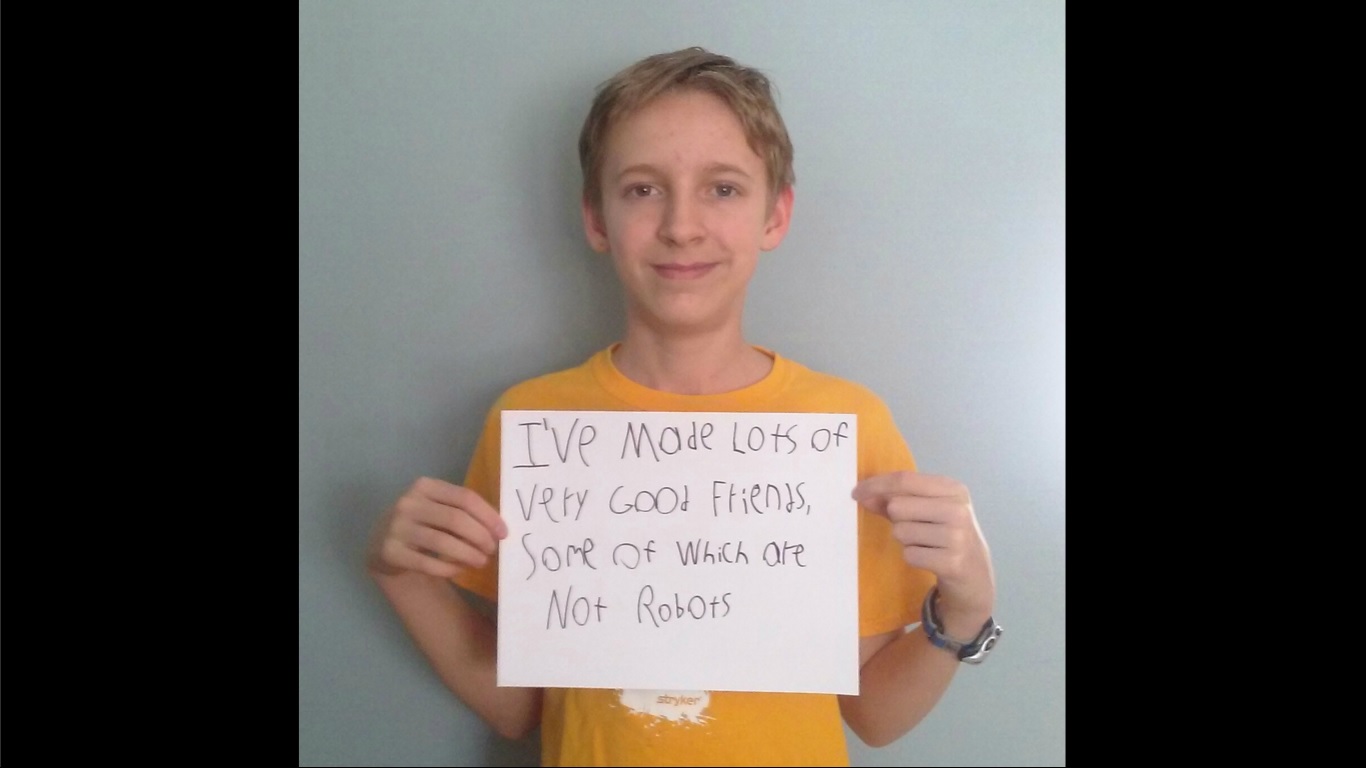 I've Made Lots of
Very Good Friends,
Some of Which are
Not Robots
stryker